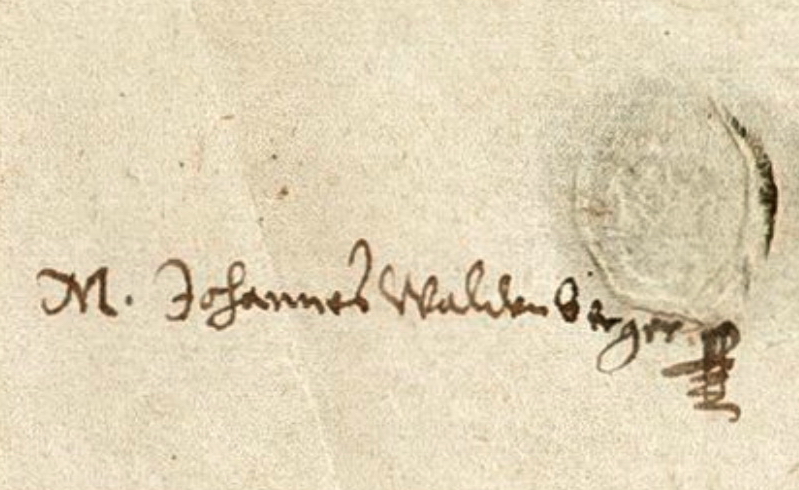 M. Johannes Waldenberger